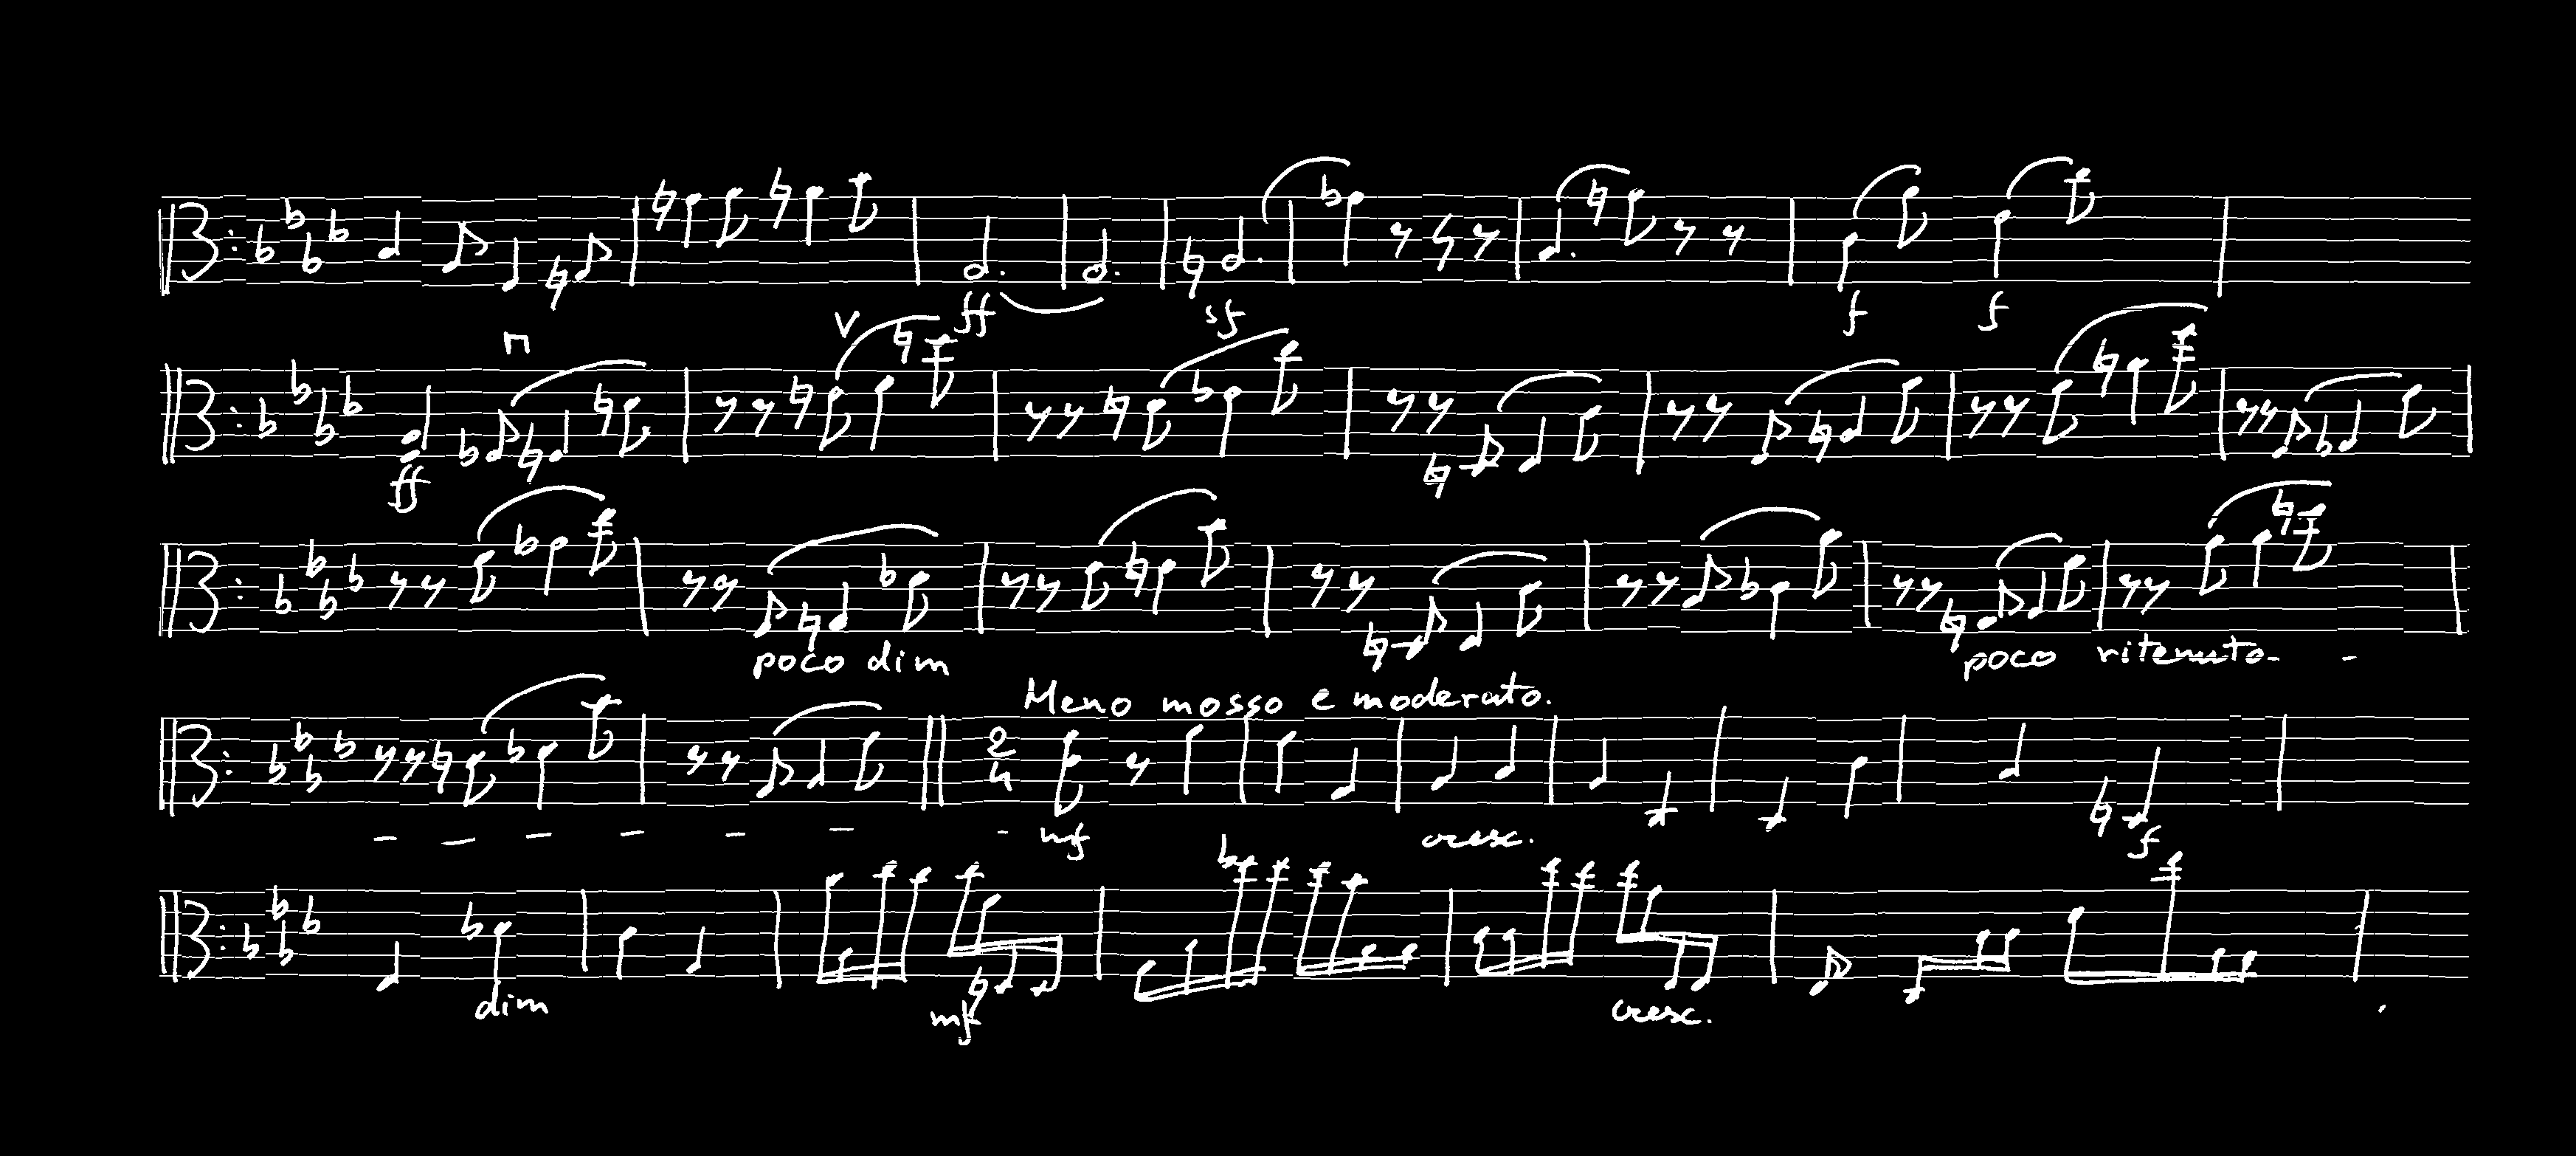 ff sf f f
ff
poco dim poco ritenuto
Meno mosso e moderato.
2 4
mf cresc. f
dim mf cresc.